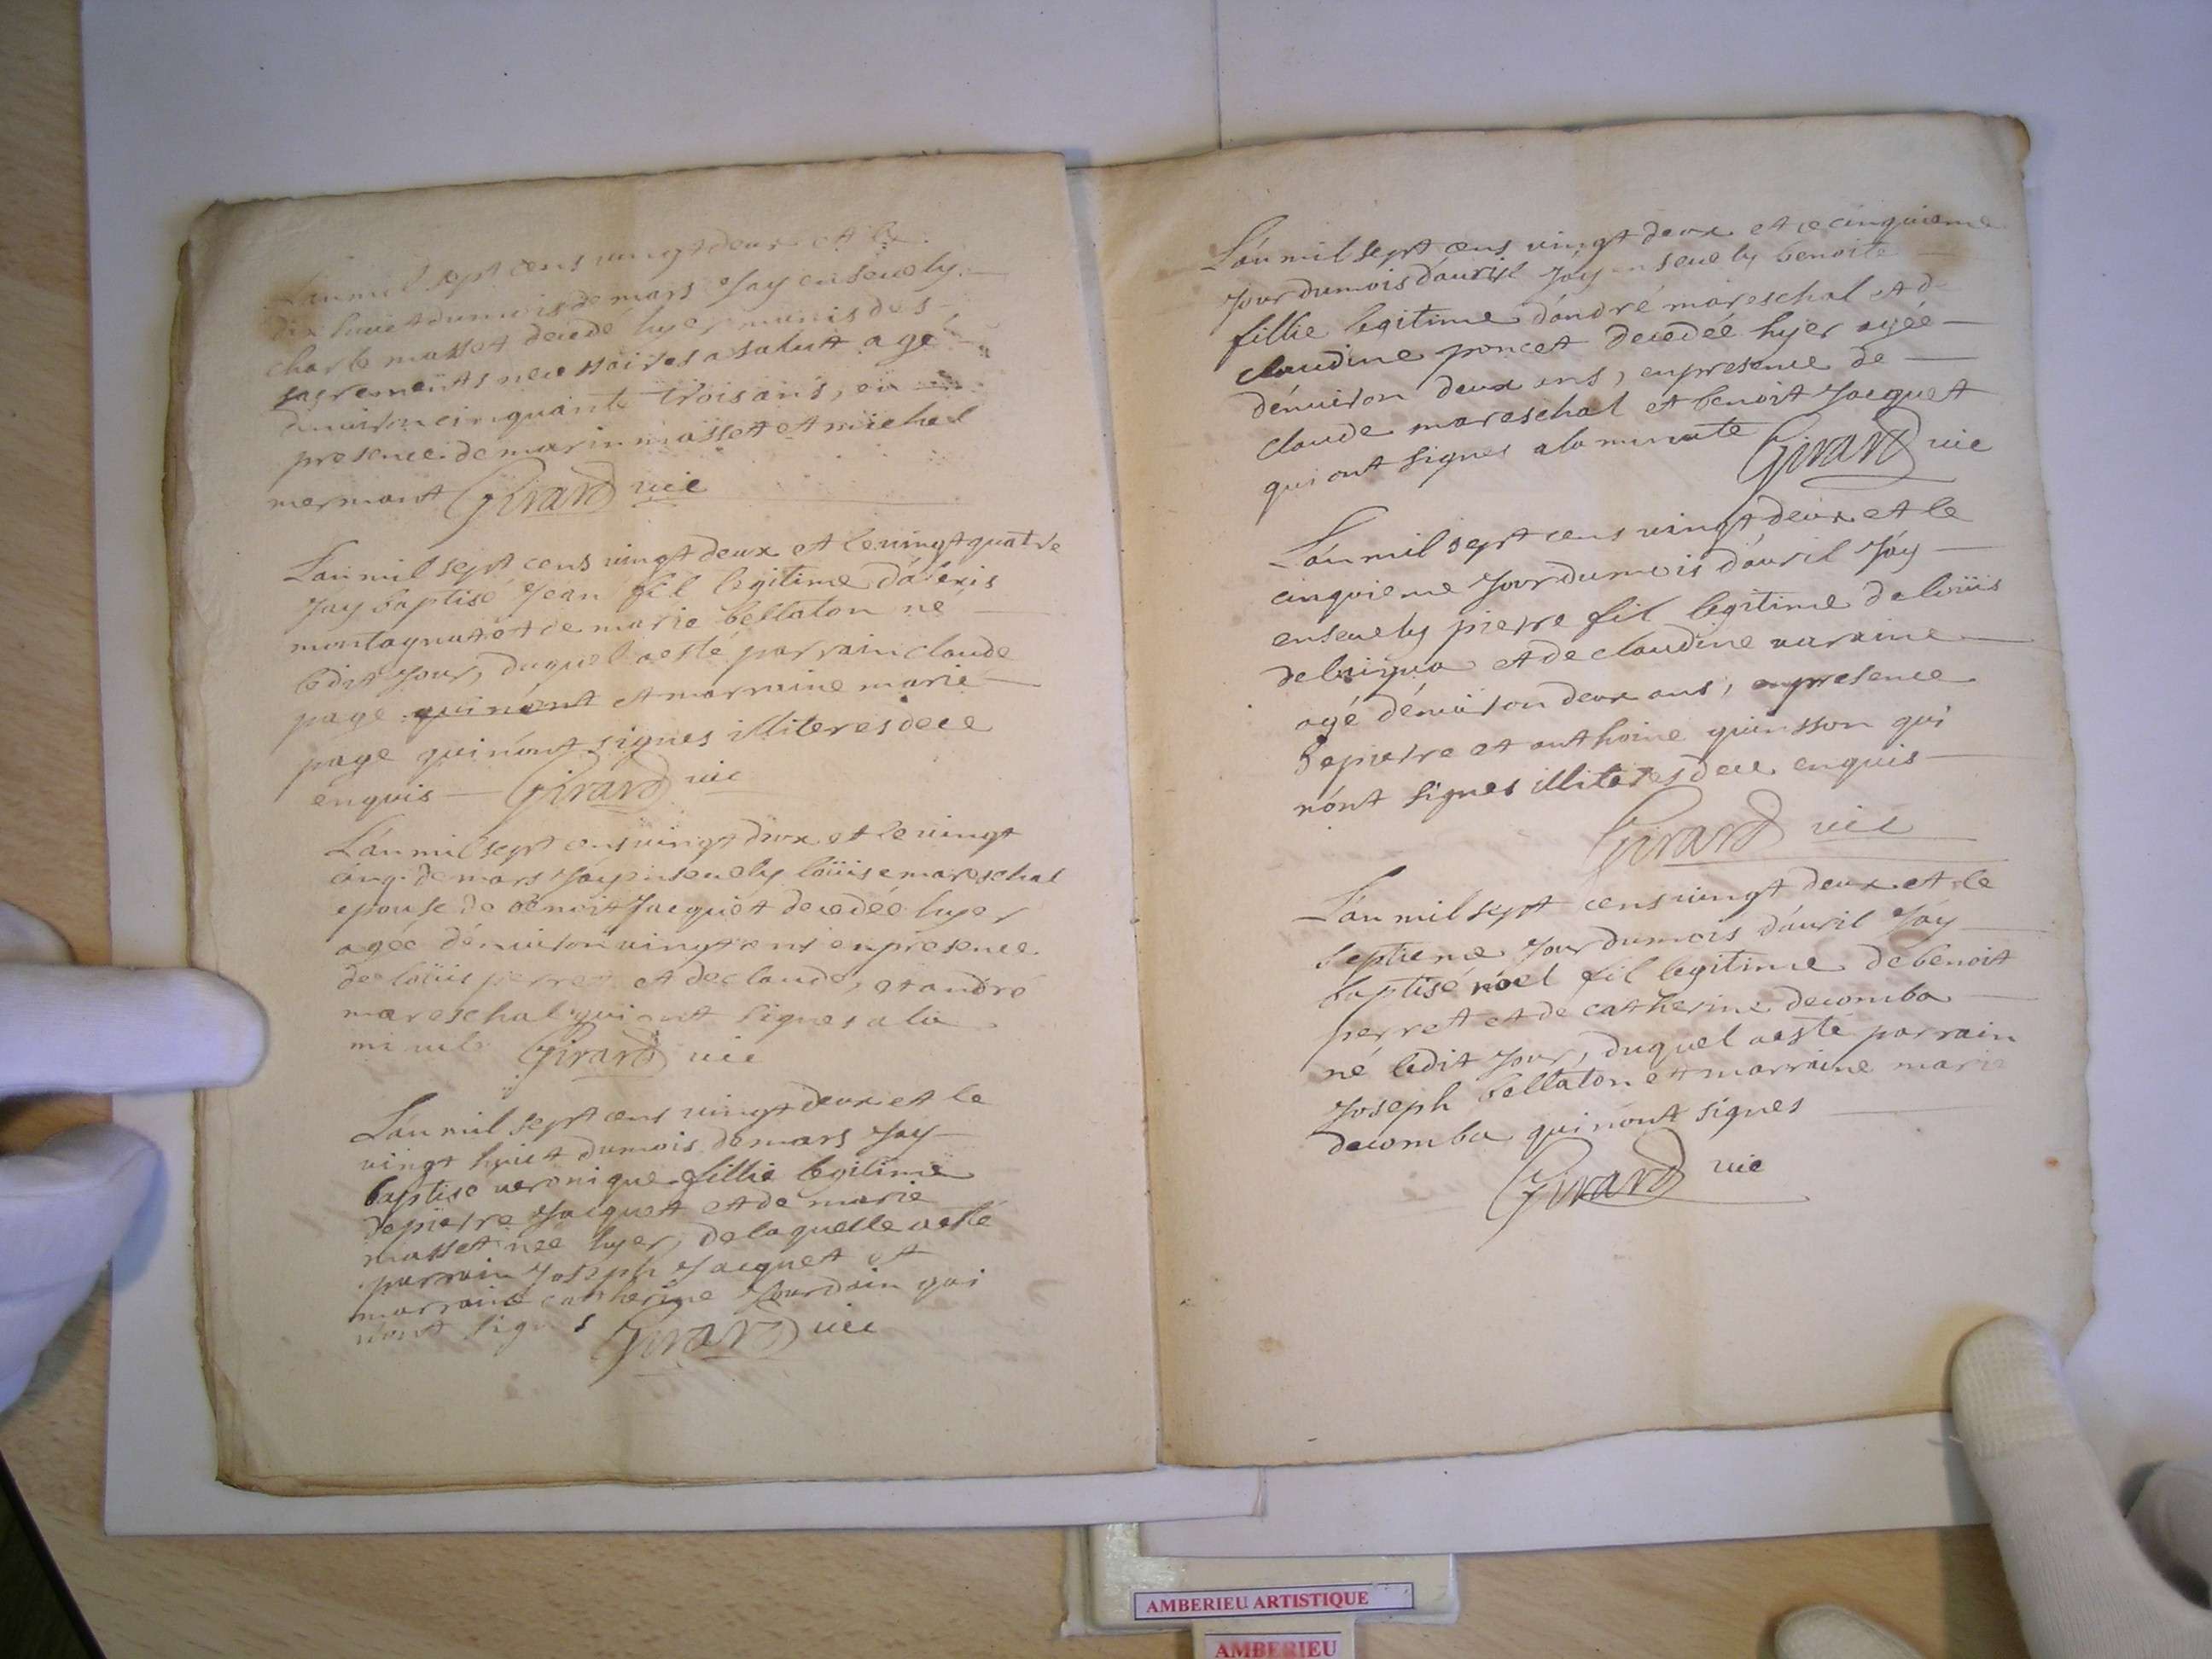 L'an mil sept cens vingt deux et le
dix huict du mois de mars Jay enseuely
charle masset decedé hyer munis des
sacrements necessaires a salut agé
d'enuiron cinquante trois ans, en
presence de marin masset et michel
mermant Girard vic
L'an mil sept cens vingt deux et le vingt quatre
Jay baptisé Jean fil legitime d'alexis
montagnat et de marie bellaton né
ledit Jour, duquel a esté parrain claude
page qui n'ont et marraine marie
page qui n'ont signes illiteres de ce
enquis Girard vic
L'an mil sept cens vingt deux et le vingt
cinq de mars Jay enseuely loüise mareschal
epouse de benoit Jacquet decedée hyer
agée d'enuiron vingt ans en presence
de loüis perret et de claude, et andré
mareschal qui ont signes a la
minute Girard vic
L'an mil sept cens vingt deux et le
vingt huict du mois de mars Jay
baptise veronique fillie legitime
de pierre Jacquet et de marie
masset née hyer, de laquelle a esté
parrain Joseph Jacquet et
marraine catherine Jourdain qui
n'ont signes Girard vic
L'an mil sept cens vingt deux et ce cinquieme
Jour du mois d'auril Jáy enseuely benoite
fillie legitime d'andré mareschal et de
claudine poncet decedée hyer agée
d'enuiron deux ans, en presence de
claude mareschal et benoit Jacquet
qui ont signes a la minute Girard vic
L'an mil sept cens vingt deux et le
cinquieme Jour du mois d'auril Jáy
enseuely pierre fil legitime de loüis
et de claudine varaine
agé d'enuiron deux ans, en presence
de pierre et anthoine quinsson qui
n'ont signes illiteres de ce enquis
Girard vic
L'an mil sept cens vingt deux et le
septieme Jour du mois d'auril Jáy
baptisé nöel fil legitime de benoit
perret et de catherine decomba
né ledit Jour, duquel a esté parrain
Joseph bellaton et marraine marie
decomba qui n'ont signes
Girard vic
AMBERIEU ARTISTIQUE
AMBERIEU